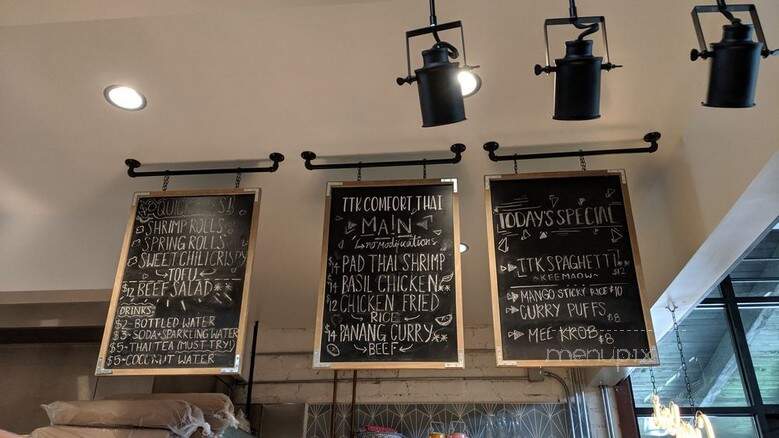 SHRIMP ROLLS
SPRING ROLLS
SWEET CHILI CRISPY
TOFU
$12 BEEF SALAD**
DRINKS:
$2- BOTTLED WATER
$3- SODA + SPARKLING WATER
$5- THAI TEA (MUST TRY!)
$5- COCONUT WATER
TTK COMFORT THAI
MAIN
no modifications
$14 PAD THAI SHRIMP
$14 BASIL CHICKEN
$12 CHICKEN FRIED
RICE
$14 PANANG CURRY
BEEF
TODAYS SPECIAL
TTK SPAGHETTI
~KEEMAOW~ $12
MANGO STICKY RICE $10
CURRY PUFFS $8
MEE KROB $8
menupix